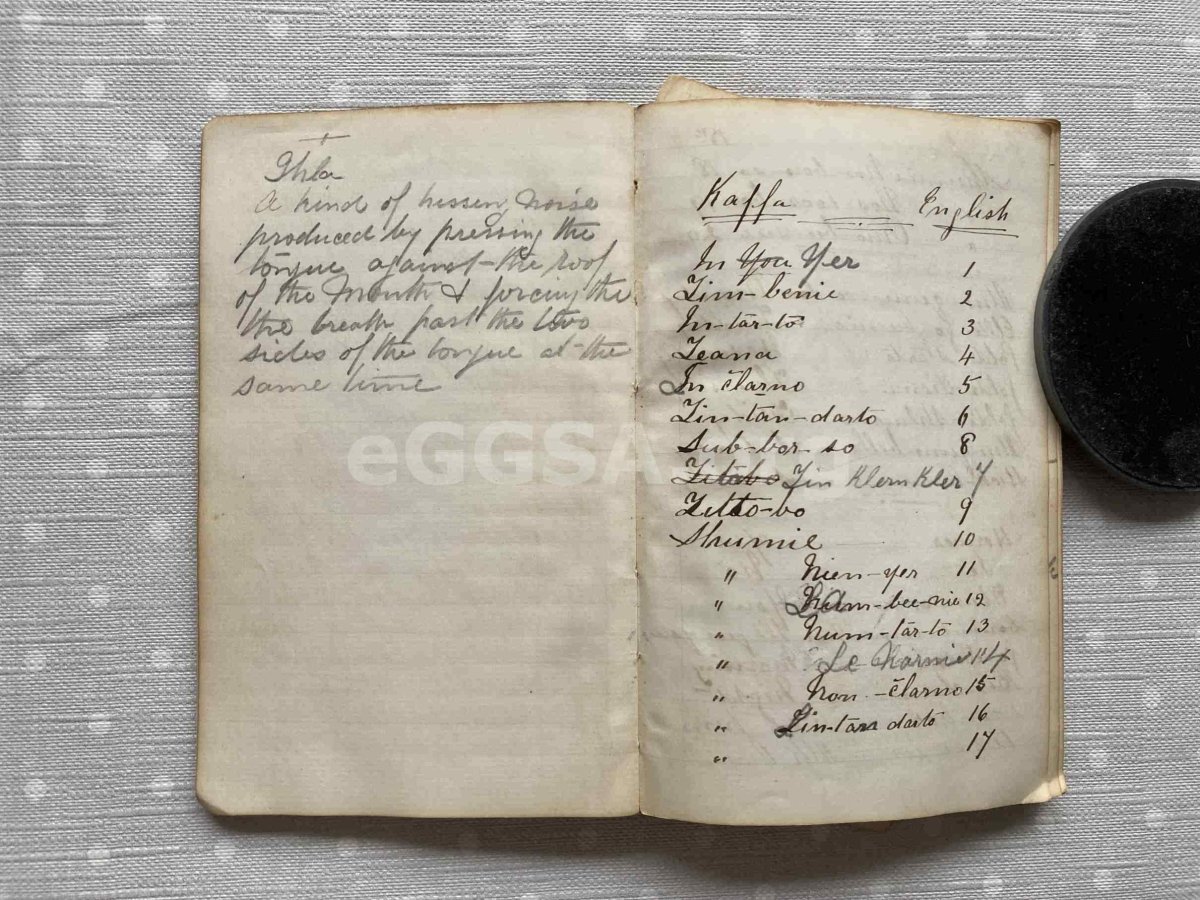 Thla
A kind of hissen, noise
produced by pressing the
tongue against the roof
of the Mouth & forcing the
the breath past the two
sides of the tongue at the
same time
Kaffa English
In You Yer 1
Zim-benie 2
In-tār-tō 3
Zeana 4
In člarno 5
Zin-tān-darto 6
Sub-bor-so 8
Zitābo Zin Klem Kler 7
Zitto-bo 9
Shumie 10
" Nien-yer 11
" Lam-bee-nie 12
" Num-tār-tō 13
" Le Narnie 14
" Non-člarno 15
" Zin-tan dartō 16
" 17
eGGSA.org